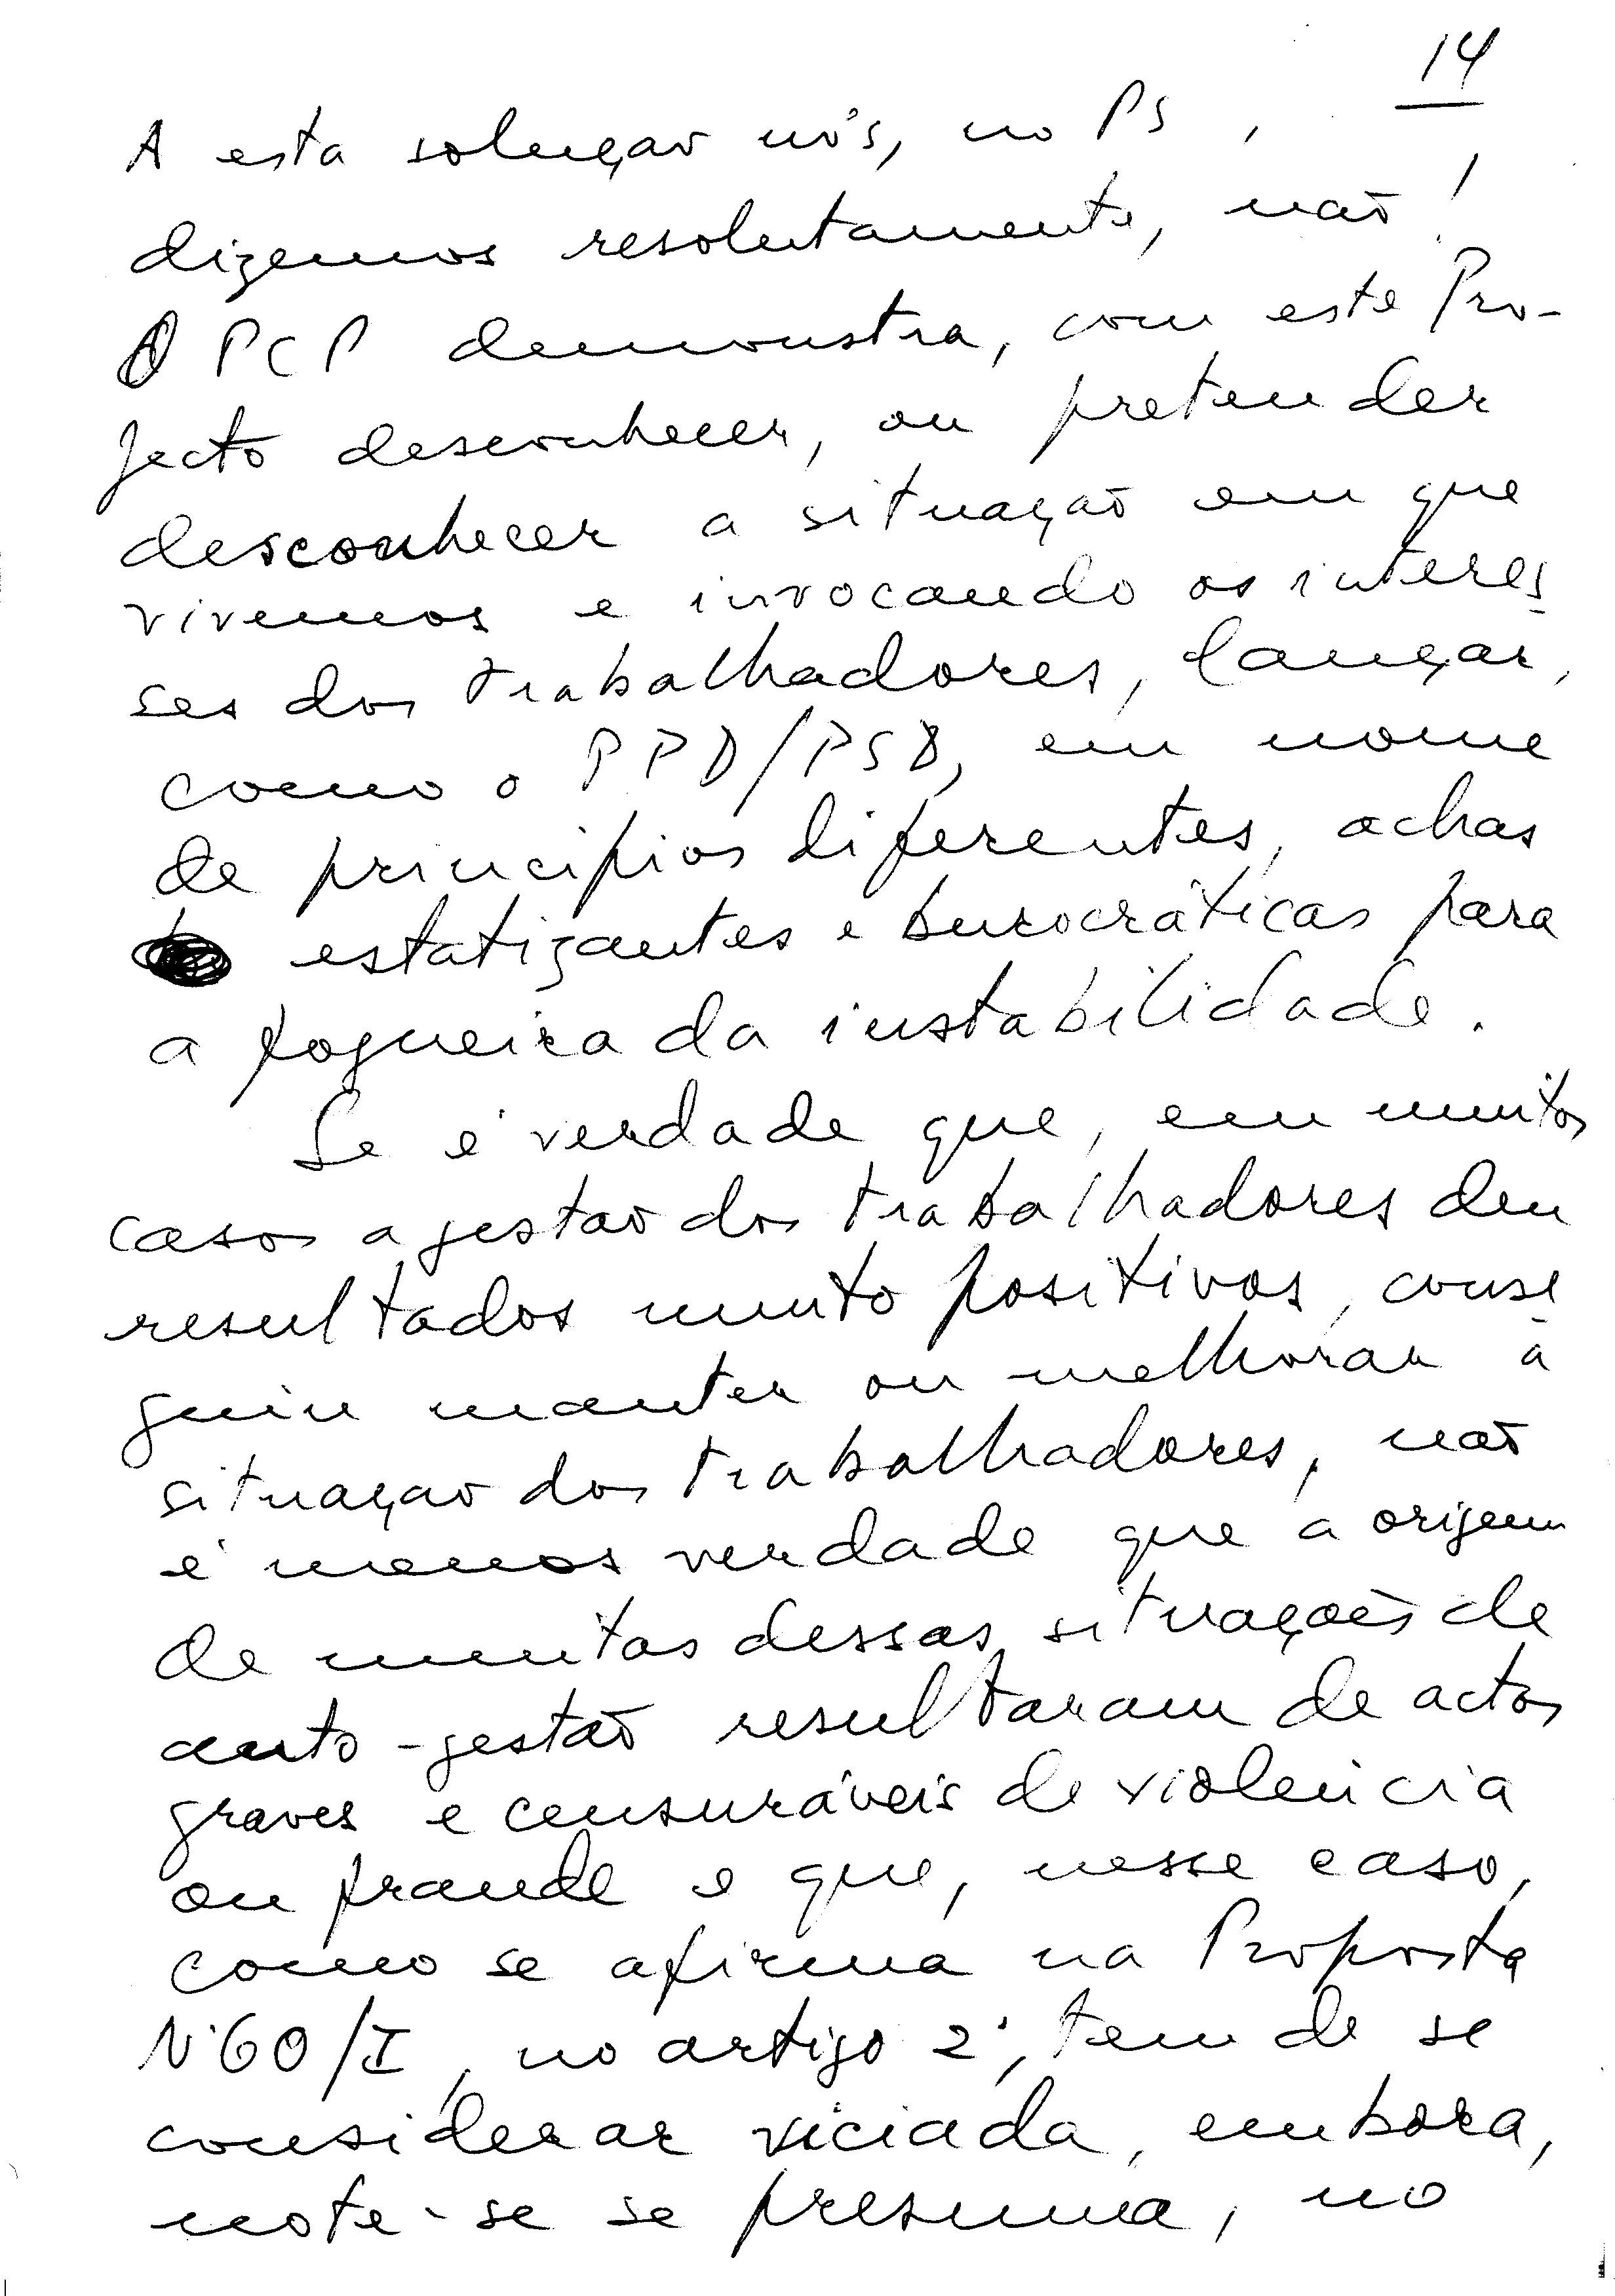 14
A esta solução nós, no PS,
dizemos resolutamente, não!
O PCP demonstra, com este Pro-
jecto desconhecer, ou pretender
desconhecer a situação em que
vivemos e invocando os interes
ses dos trabalhadores, lançar,
como o PPD/PSD, em nome
de principios diferentes, achas
estatizantes e burocráticas para
a fogueira da instabilidade.
Se é verdade que, em muitos
casos a gestão dos trabalhadores deu
resultados muito positivos, conse
guiu manter ou melhorar a
situação dos trabalhadores, não
é menos verdade que a origem
de muitas dessas situações de
auto-gestão resultaram de actos
graves e censuráveis de violência
ou fraude e que, nesse caso,
como se afirma na Proposta
Nº 60/I, no artigo 2º, tem de se
considerar viciada, embora,
note-se se presuma, no